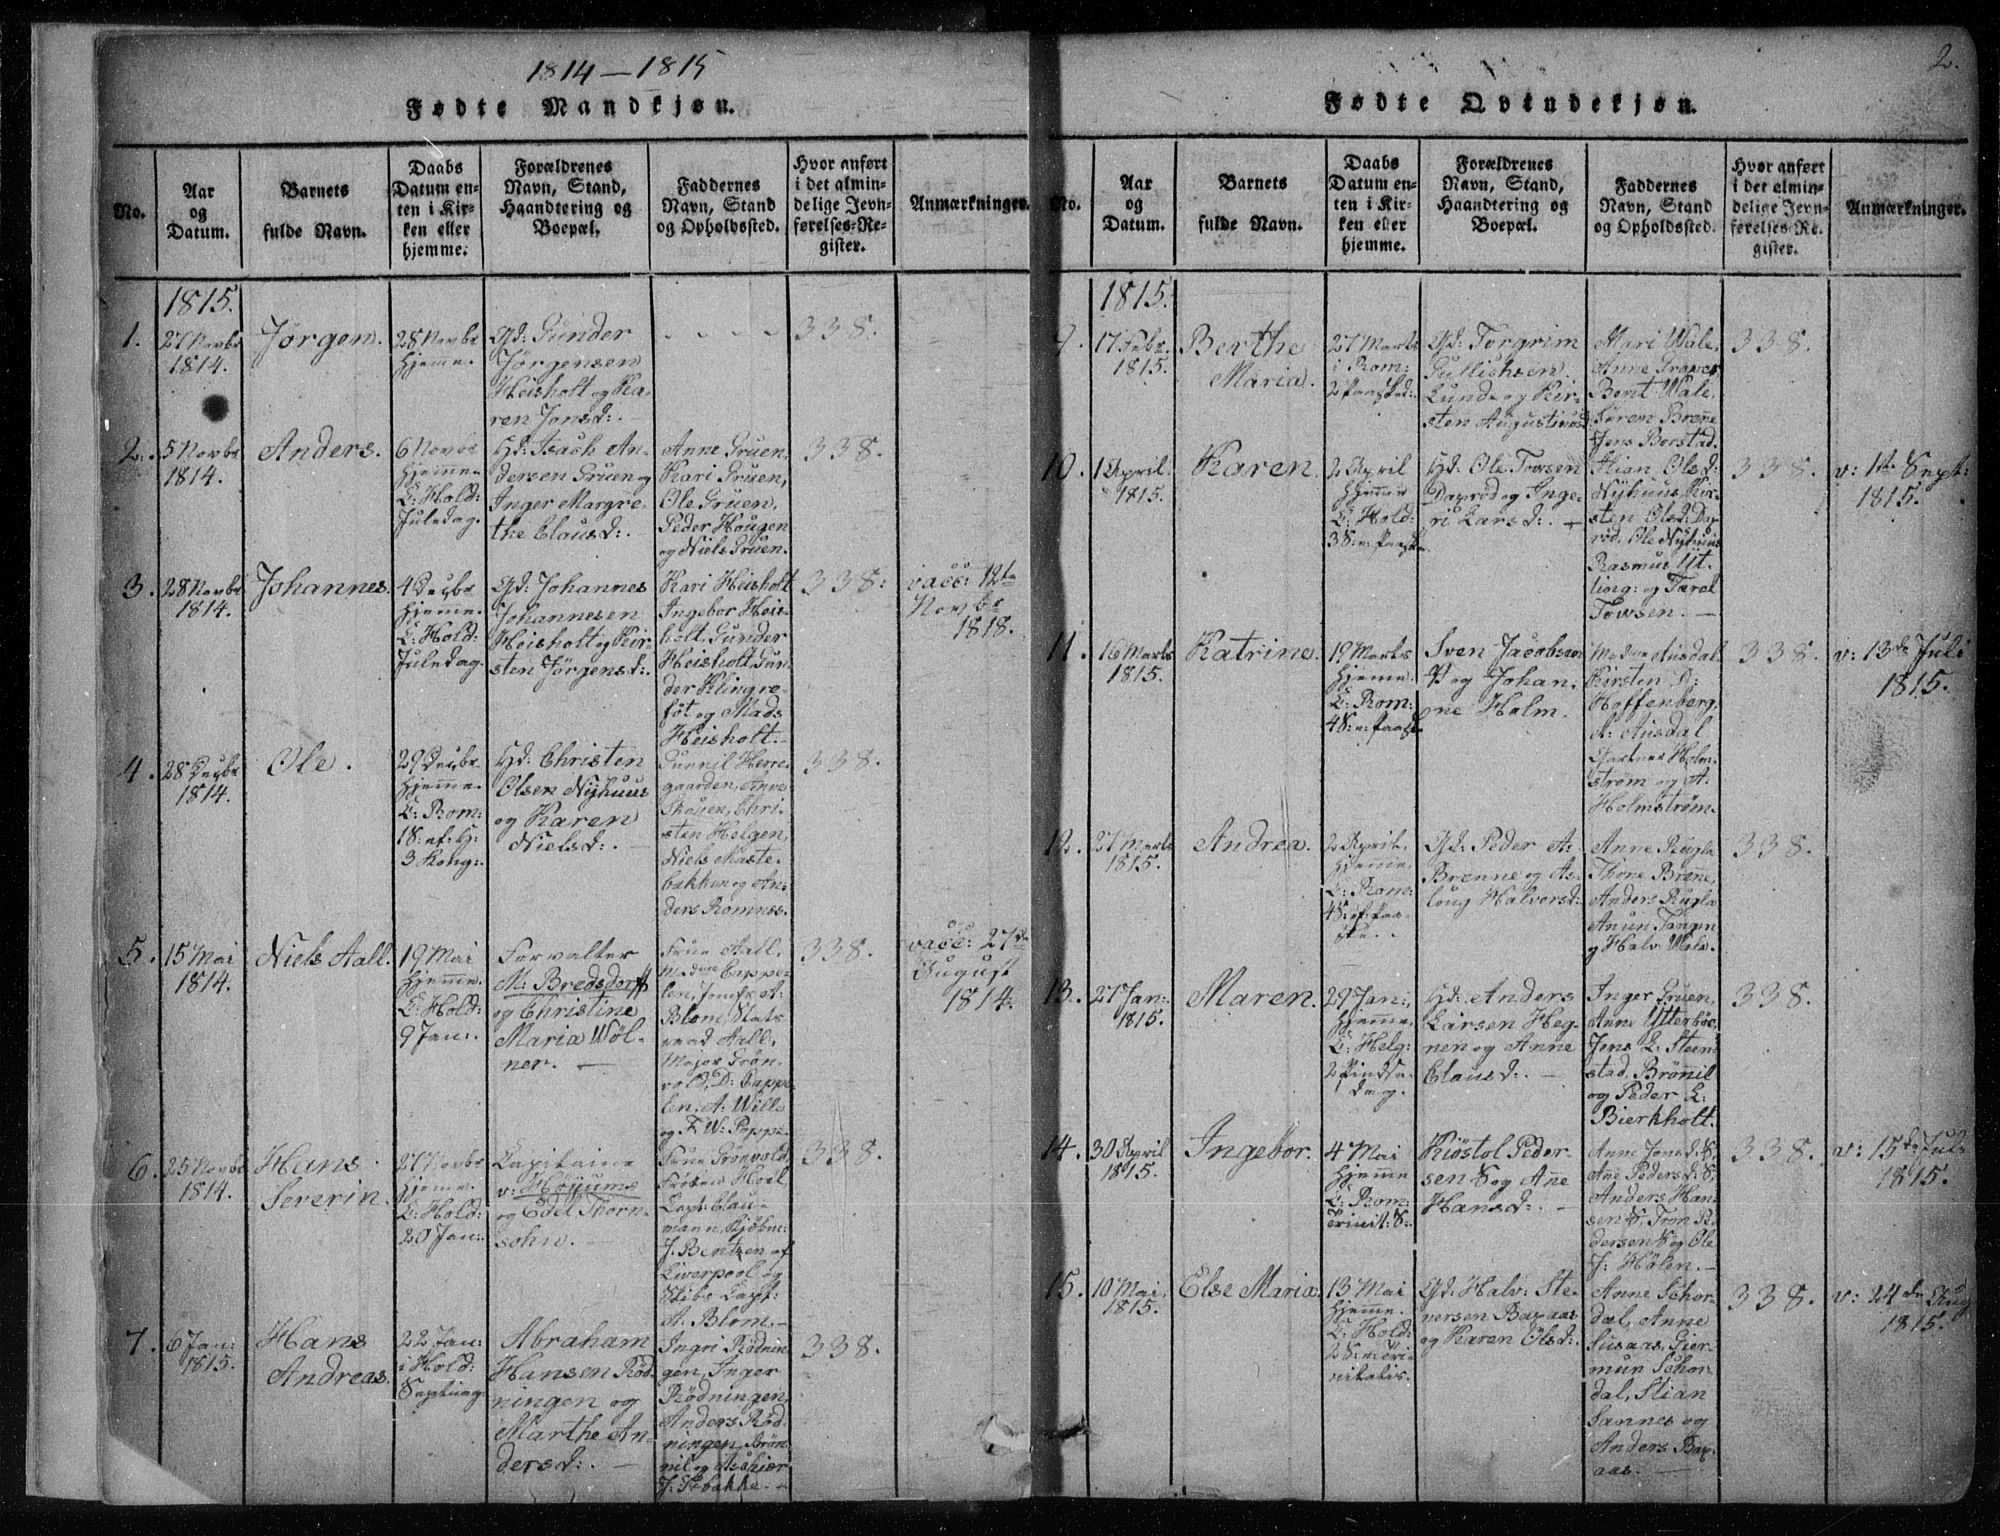 1814–1815
Fødte Mandkjøn.
No.
Aar
og
Datum.
Barnets
fulde Navn.
Daabs
Datum en-
ten i Kir-
ken eller
hjemme.
Forældrenes
Navn, Stand,
Haandtering og
Boepæl.
Faddernes
Navn, Stand
og Opholdssted.
Hvor anført
i det almin-
delige Jevn-
førelses-Re-
gister.
Anmærkninger.
1815.
1.
27 Novbr
1814.
Jørgen.
28 Novbr
hjemme.
Gd: Gunder
Jørgensen
Heisholt og Ka-
ren Jonsd:
- - - -
338.
2.
5 Novbr
1814.
Anders.
6 Novbr
hjemme.
E: Hold:
Juledag.
Hd: Isach An-
dersen Gruen og
Inger Margre-
the Clausd:
Anne Gruen,
Kari Gruen,
Ole Gruen,
Peder Hougen
og Niels Gruen.
338.
3.
28 Novbr
1814.
Johannes.
4 Decbr
hjemme.
E: Hold:
Juledag.
Gd: Johannes
Johannesen
Heisholt og Kir-
sten Jørgensd:
Kari Heisholt
Ingebor Heis-
holt, Gunder
Heisholt, Gun-
der Klingre-
fot og Mads
Heisholt.
338:
vacc: 12te
Novbr
1818.
4.
28 Decbr
1814.
Ole.
29 Decbr
hjemme.
E: Rom:
1 S: ef: H:
3 Kong:
Hd: Christen
Olsen Nyhuus
og Karen
Nielsd:
Gunnil Herre-
gaarden, Anne
Skouen, Chri-
sten Helgen,
Niels Maste-
bakken og An-
ders Romnes.
338.
5.
15 Mai
1814.
Niels Aall.
19 Mai
hjemme.
E: Hold:
9 Jan:
Forvalter
M: Bredsdorff
og Christine
Maria Wøl-
ner.
Frue Aall,
Madam Cappe-
len, Jomfr A:
Blom, Stats
raad Aall,
Major Grøn-
vold, D: Cappe-
len, A: Wille
og F. W: Poppe.
338.
vacc: 27de
August
1814.
6.
25 Novbr
1814.
Hans
Severin.
27 Novbr
hjemme.
E: Hold:
20 Jan:
Capitaine
v: Høyums
og Edel Thorn-
sohn.
Frue Grønvold,
Frøken Hoel,
Capt: Clau-
mann, Kjøbm:
J. Bentzen af
Liverpool og
Skibs Capt:
A. Blom.
338.
7.
6 Jan:
1815.
Hans
Andreas.
22 Jan:
i Hold:
Septuag:
Abraham
Hansen Rød-
ningen og
Marthe An-
dersd:
Ingri Rødnin-
gen, Inger
Rødningen,
Anders Rød-
ningen, Brøn-
nil og Aschier
J: Sebakke.
338.
2.
Fødte Qvindekjøn.
No.
Aar
og
Datum.
Barnets
fulde Navn.
Daabs
Datum en-
ten i Kir-
ken eller
hjemme.
Forældrenes
Navn, Stand,
Haandtering og
Boepæl.
Faddernes
Navn, Stand
og Opholdssted.
Hvor anført
i det almin-
delige Jevn-
førelses-Re-
gister.
Anmærkninger.
1815.
9.
17 Febr.
1815.
Berthe
Maria.
27 Marts
i Rom:
2 Paasked:
Gd: Torgrim
Gullichsen
Lunde og Kir-
sten Augustinusd:
Mari Wale,
Anne Graver
Bent Wale,
Søren Brenne
Jens Berstad.
338.
10.
1 April.
1815.
Karen.
2 April
hjemme
E: Hold:
3 S: e: Paaske.
Hd: Ole Tovsen
Daxrød og Inge-
ri Larsd:
Kian Olsd:
Nyhuus, Kir-
sten Olsd: Dax
rød, Ole Nyhuus
Rasmus Yt-
ling: og Tarel
Tovsen.
338.
v: 1te Sept:
1815.
11.
16 Marts
1815.
Katrine.
19 Marts
hjemme.
E: Rom:
4 S: e: Paaske
Sven Jacobsen
P og Johan-
ne Holm.
Madam Ausdal
Kirsten D:
Hoffenberg,
A: Ausdal
Gartner Holm-
strøm og A.
Holmstrøm.
338.
v: 13de Juli
1815.
12.
27 Marts
1815.
Andrea.
2 April.
hjemme,
E: Rom:
4 S: ef: Paa-
ske.
Gd: Peder A-
Brenne og As-
loug Halvorsd:
Anne Rugla
Thone Brenne,
Anders Rugla
Anun Tangen
og Halv: Wale.
338.
13.
27 Jan:
1815.
Maren.
29 Jan:
hjemme,
E: Helg:
2 Pindse-
dag.
Hd: Anders
Larsen Heg-
nen og Anne
Clausd:
Inger Gruen,
Anne Ytterbøe,
Jens L: Steen-
stad, Brønnil
og Peder L:
Bierkholt.
338.
14.
30 April
1815.
Ingebor.
4 Mai
hjemme
E: Rom:
Trinit: S:
Kiøstol Peder-
sen S og Ane
Hansd:
Anne Jonsd: S,
Ane Pedersd: S,
Anders Han-
sen S, Tron Pe-
dersen S og Ole
J: Hølen.
338.
v: 15de Juli
1815.
15.
10 Mai.
1815.
Else Maria.
13 Mai
hjemme.
E: Hold:
2 S: e: Tri-
nitatis.
Gd: Halv: Ste-
versen Baxaas
og Karen Olsd:
Anne Schor-
dal, Anne
Susaas, Gier-
mun Schor-
dal, Stian
Sannes og
Anders Bax-
aas.
338.
v: 24de Aug
1815.